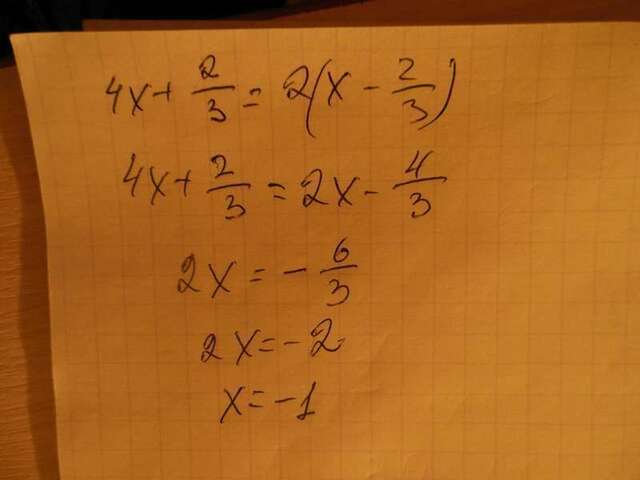 4x + 2/3 = 2(x - 2/3)
4x + 2/3 = 2x - 4/3
2x = - 6/3
2x = -2
x = -1